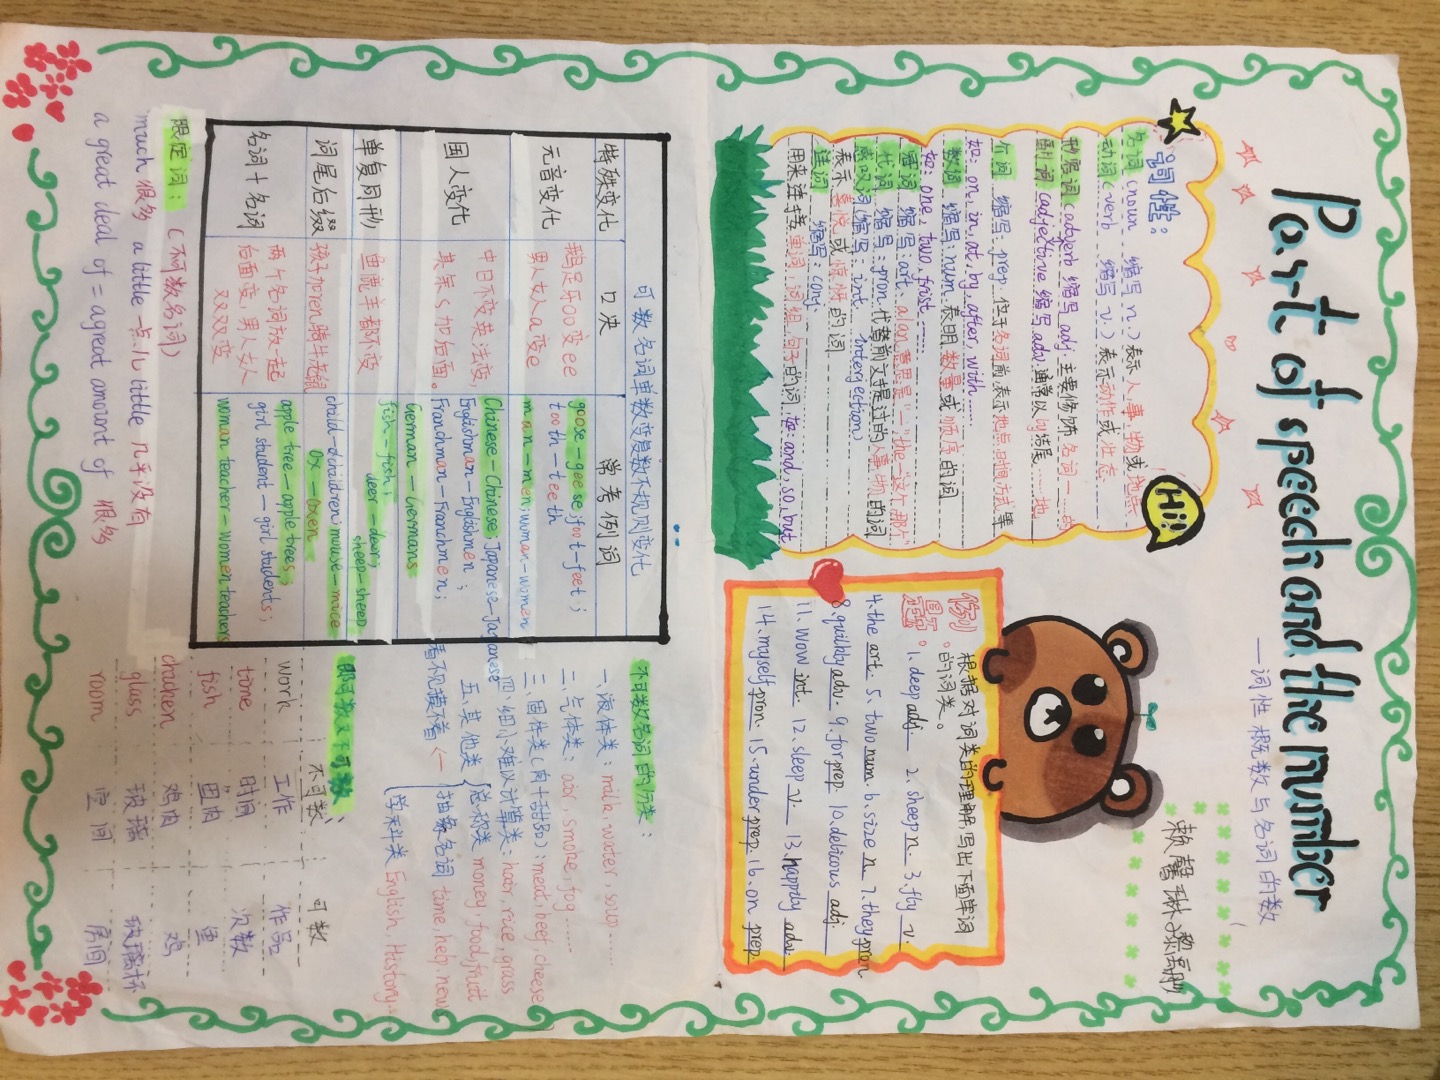 Part of speech and the number
——词性概数与名词的数
词性：
名词 (noun 缩写 n.) 表示人、事、物或地点
动词 (verb 缩写 v.) 表示动作或状态
副词 (adjective 缩写 adv. 通常以
介词 缩写: prep. 位于名词前,表示地点,时间,方式等
如: on, in, at, by, after, with……
数词 缩写: num. 表明数量或顺序的词
如: one, two, frist……
冠词 缩写: art. a.an 意思是"一" the—这个,那个
代词 缩写: pron. 代替前文提过的人事物的词
感叹词 (缩写: int. interjection)
表示喜悦或惊讶的词
连词 缩写: conj.
用来连接单词,词组,句子的词,如: and, so, but
Hi!
例题。
根据对词类的理解,写出下面单词
的词类。
1. deep adj. 2. sheep n. 3. fly v.
4. the art. 5. two num. 6. size n. 7. they pron
8. quilkly adv. 9. for prep. 10. delicous adj.
11. wow int. 12. sleep v. 13. happily adv.
14. myself pron. 15. under prep. 16. on prep.
可数名词单数变复数不规则变化
特殊变化 口决 常考例词
元音变化 鹅足牙oo变ee 男人女人a变e goose-geese; foot-feet; tooth-teeth man-men; woman-women
国人变化 中日不变英法变, 其余s加后面。 Chinese-Chinese; Japanese-Japanese Englishman-Englishmen; Franchman-Franchmen; German-Germans
单复同形 鱼鹿羊都不变 fish-fish; deer-deer; sheep-sheep
词尾后缀 child-children; mouse-mice ox-oxen
名词+名词 两个名词放一起 后面变,男人女人 双双变 apple tree-apple trees; girl student-girl students; woman teacher-women teachers
限定词: (不可数名词)
much 很多 a little 一点儿 little 几乎没有
a great deal of = a great amount of 很多
不可数名词的分类:
一、液体类: milk, water, soup……
二、气体类: air, smoke, fog……
三、固体类(肉+甜品): meat, beef, cheese
四、细小难以计算类: hair, rice, grass
五、其他类 总称类 money, food, fruit
看不见摸不着 抽象名词 time, help, news
学科类 English, History.
即可数又不可数
不可数 可数
work 工作 作品
time 时间 次数
fish 鱼肉 鱼
chicken 鸡肉 鸡
glass 玻璃 玻璃杯
room 空间 房间